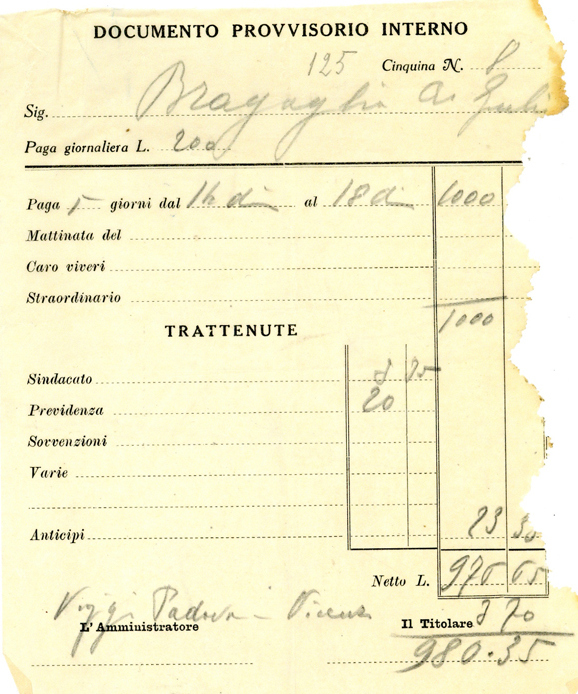 DOCUMENTO PROVVISORIO INTERNO
125 Cinquina N. 8
Sig. Bragaglia
Paga giornaliera L. 200
Paga 5 giorni dal al 18 1000
Mattinata del
Caro viveri
Straordinario
1000
TRATTENUTE
Sindacato
Previdenza 20
Sovvenzioni
Varie
Anticipi 23
Netto L. 976 65
Padova - Vicenza
L'Amministratore Il Titolare 3 70
980.35